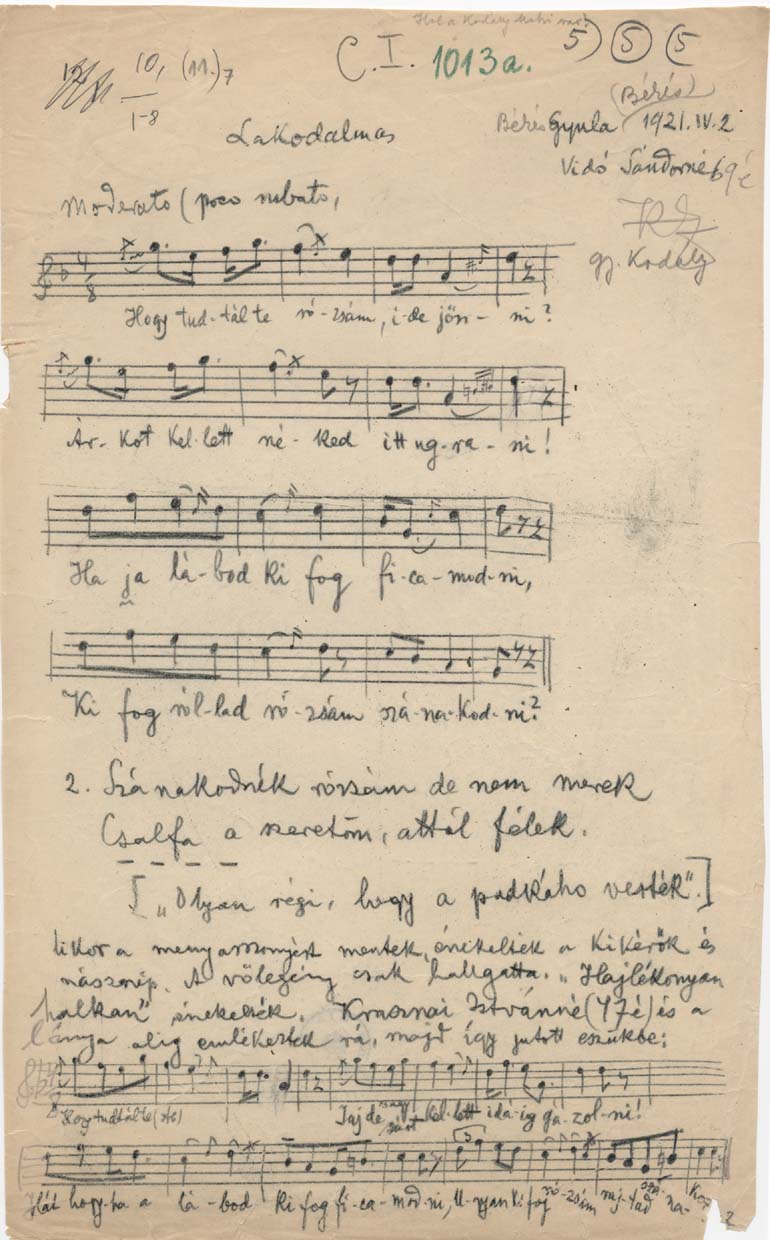 C.I. 1013a. 5) 5 (5
10, (11.)7
1-8
(Bérés)
Lakodalmas
Bérés Gyula 1921. IV. 2
Vidó Sándorné 69é
Moderato (poco rubato,
gy. Kodály
Hogy tud-tál te ró-zsám, i-de jön-ni?
Ár-kot kel-lett né-ked itt ug-ra-ni!
Ha ja lá-bod ki fog fi-ca-mod-ni,
Ki fog ról-lad ró-zsám szá-na-kod-ni?
2. Szánakodnék rózsám de nem merek
Csalfa a szeretőm, attól félek.
[„Olyan régi, hogy a padkáho verték".]
Mikor a menyasszonyért mentek, énekelték a Kikérők és
násznép. A vőlegény csak hallgatta. „Hajlékonyan
halkan" énekelték. Krasznai Istvánné (47é) és a
lánya alig emlékeztek rá, majd így jutott eszükbe:
Hogy tudtál te (stb) Jaj de nagy sárt kel-lett idá-ig gá-zol-ni!
Hát hogy-ha a lá-bod ki fog fi-ca-mod-ni, U-gyan ki fog ró-zsám raj-tad szá-na-